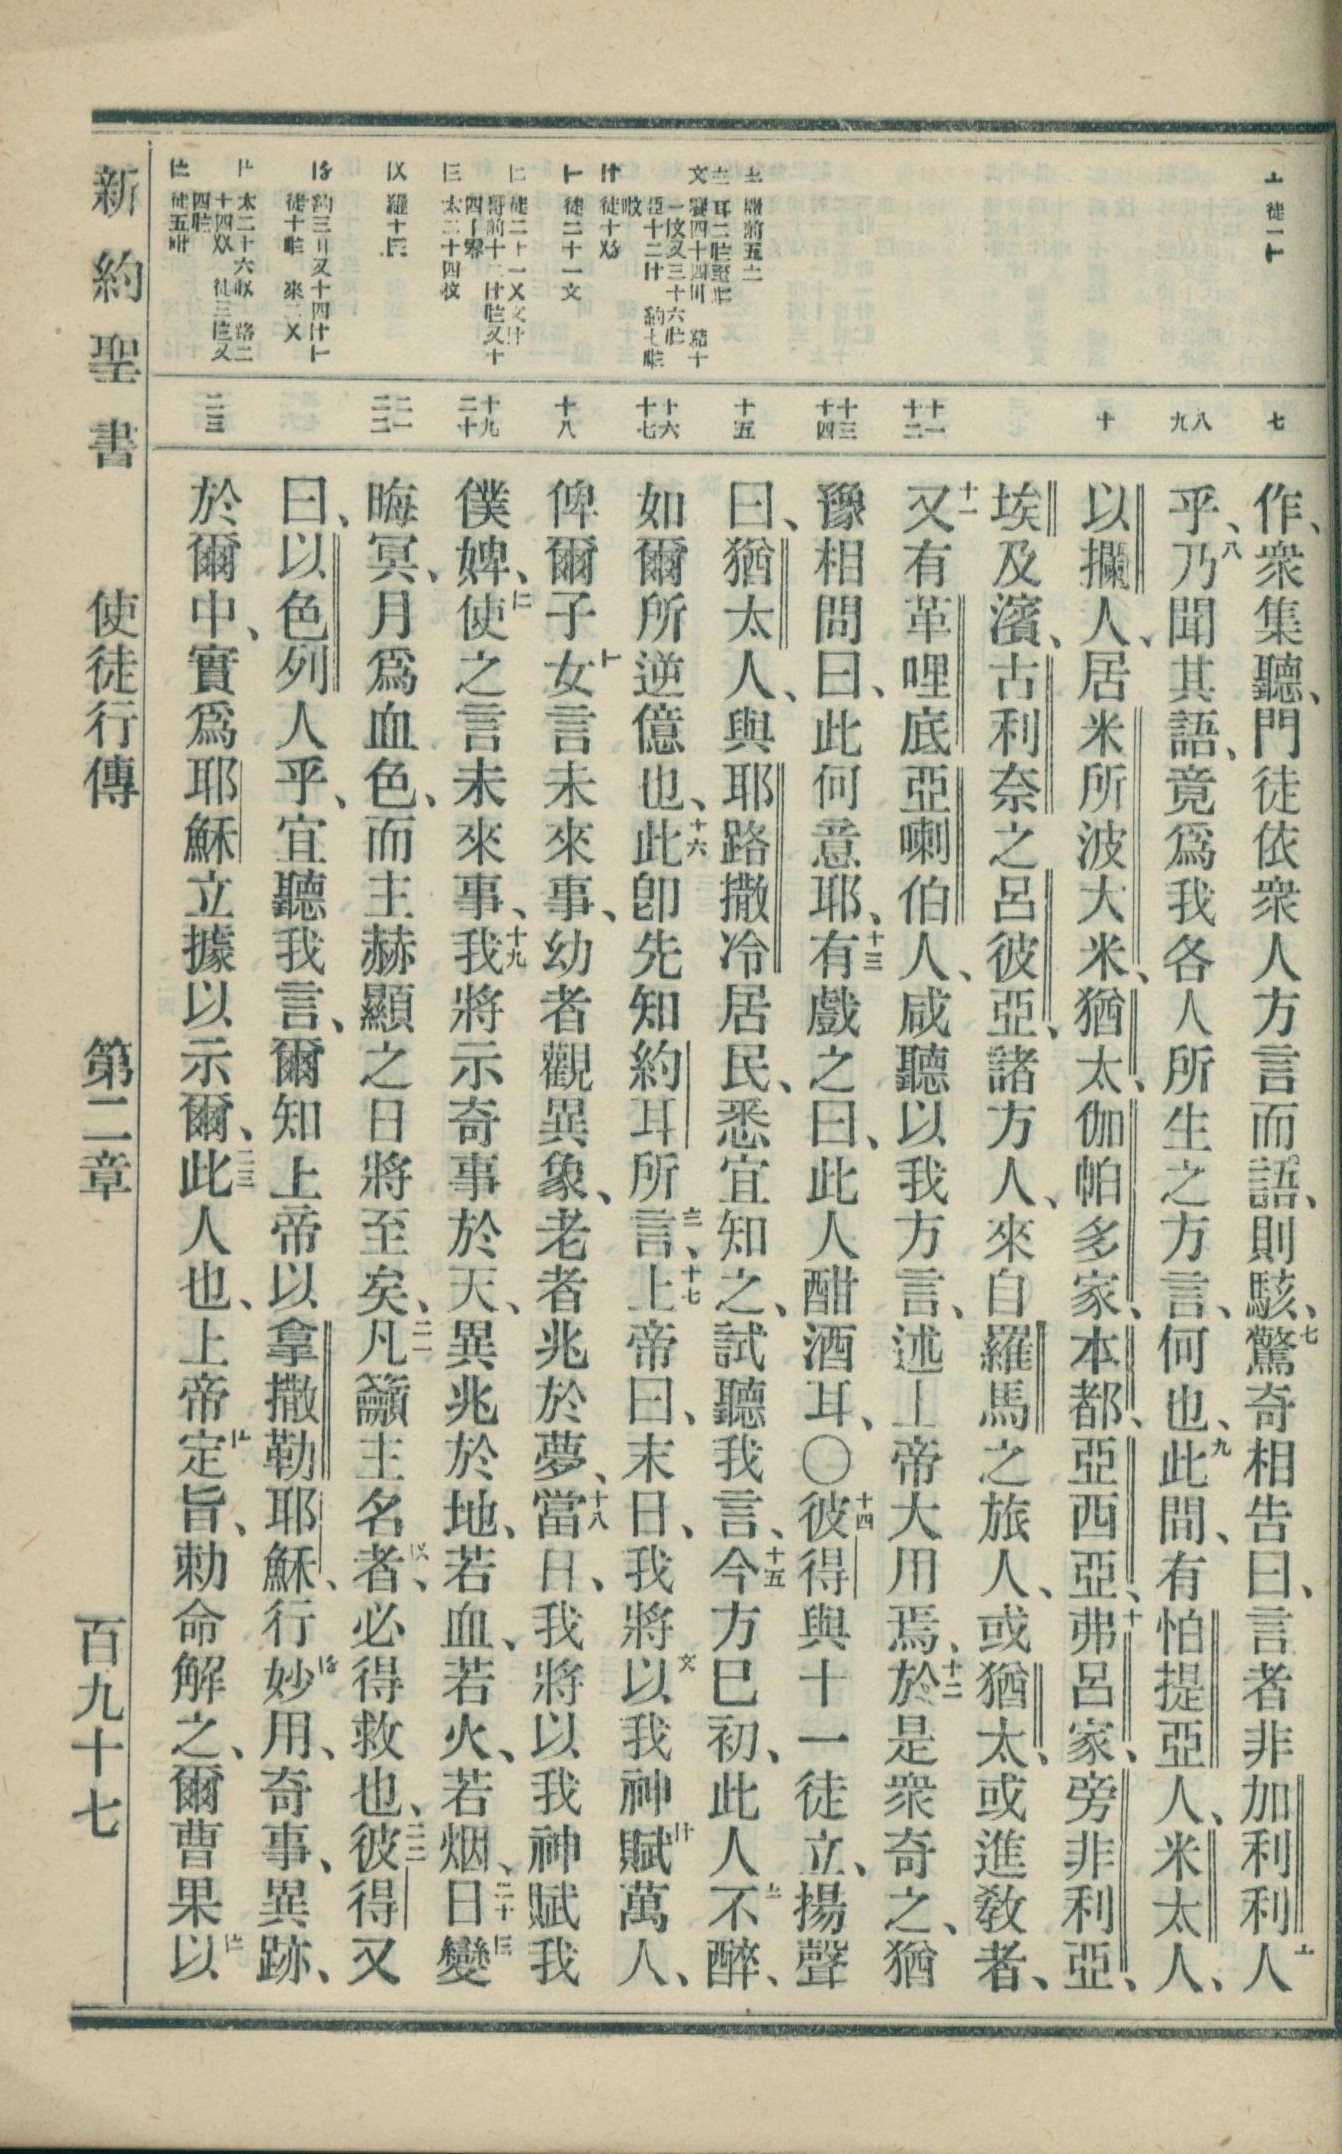 七
八
九
十
十一
十二
十三
十四
十五
十六
十七
十八
十九
二十
二一
二二
二三
作、衆集聽、門徒依衆人方言而語、則駭、七驚奇相告曰、言者非加利利人
乎、八乃聞其語、竟爲我各人所生之方言、何也、九此間、有怕提亞人、米太人、
以攔人、居米所波大米、猶太、伽帕多家、本都、亞西亞、十弗呂家、旁非利亞、
埃及濱、古利奈之呂彼亞、諸方人、來自羅馬之旅人、或猶太、或進敎者、
十一又有革哩底亞喇伯人、咸聽以我方言、述上帝大用焉、十二於是衆奇之、猶
豫相問曰、此何意耶、十三有戲之曰、此人酣酒耳、〇十四彼得與十一徒立、揚聲
曰、猶太人、與耶路撒冷居民、悉宜知之、試聽我言、十五今方巳初、此人不醉、
如爾所逆億也、十六此卽先知約耳所言、十七上帝曰、末日、我將以我神賦萬人、
俾爾子女言未來事、幼者觀異象、老者兆於夢、十八當日、我將以我神賦我
僕婢、使之言未來事、十九我將示奇事於天、異兆於地、若血、若火、若烟、二十日變
晦冥、月爲血色、而主赫顯之日將至矣、二一凡籲主名者、必得救也、二二彼得又
曰、以色列人乎、宜聽我言、爾知上帝以拿撒勒耶穌、行妙用、奇事、異跡、
於爾中、實爲耶穌立據以示爾、二三此人也、上帝定旨、勅命解之、爾曹果以
新約聖書 使徒行傳 第二章 百九十七